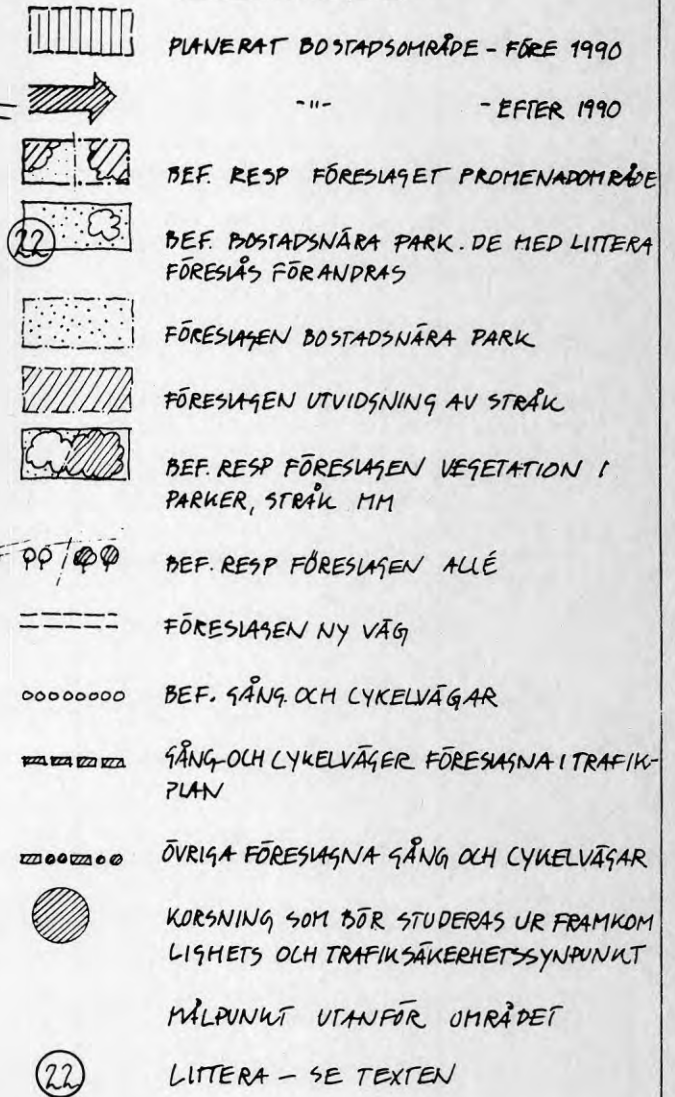 PLANERAT BOSTADSOMRÅDE - FÖRE 1990
-"- - EFTER 1990
BEF. RESP FÖRESLAGET PROMENADOMRÅDE
22 BEF. BOSTADSNÄRA PARK. DE MED LITTERA
FÖRESLÅS FÖRÄNDRAS
FÖRESLAGEN BOSTADSNÄRA PARK
FÖRESLAGEN UTVIDGNING AV STRÅK
BEF. RESP FÖRESLAGEN VEGETATION I
PARKER, STRÅK MM
BEF. RESP FÖRESLAGEN ALLÉ
FÖRESLAGEN NY VÄG
BEF. GÅNG. OCH CYKELVÄGAR
GÅNG-OCH CYKELVÄGER FÖRESLAGNA I TRAFIK-
PLAN
ÖVRIGA FÖRESLAGNA GÅNG OCH CYKELVÄGAR
KORSNING SOM BÖR STUDERAS UR FRAMKOM
LIGHETS OCH TRAFIKSÄKERHETSSYNPUNKT
MÅLPUNKT UTANFÖR OMRÅDET
22 LITTERA - SE TEXTEN